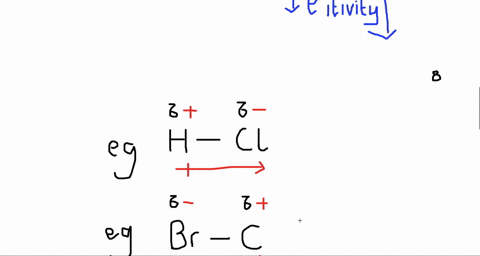 itivity
δ
δ+ δ-
eg H - Cl
δ- δ+
eg Br - C